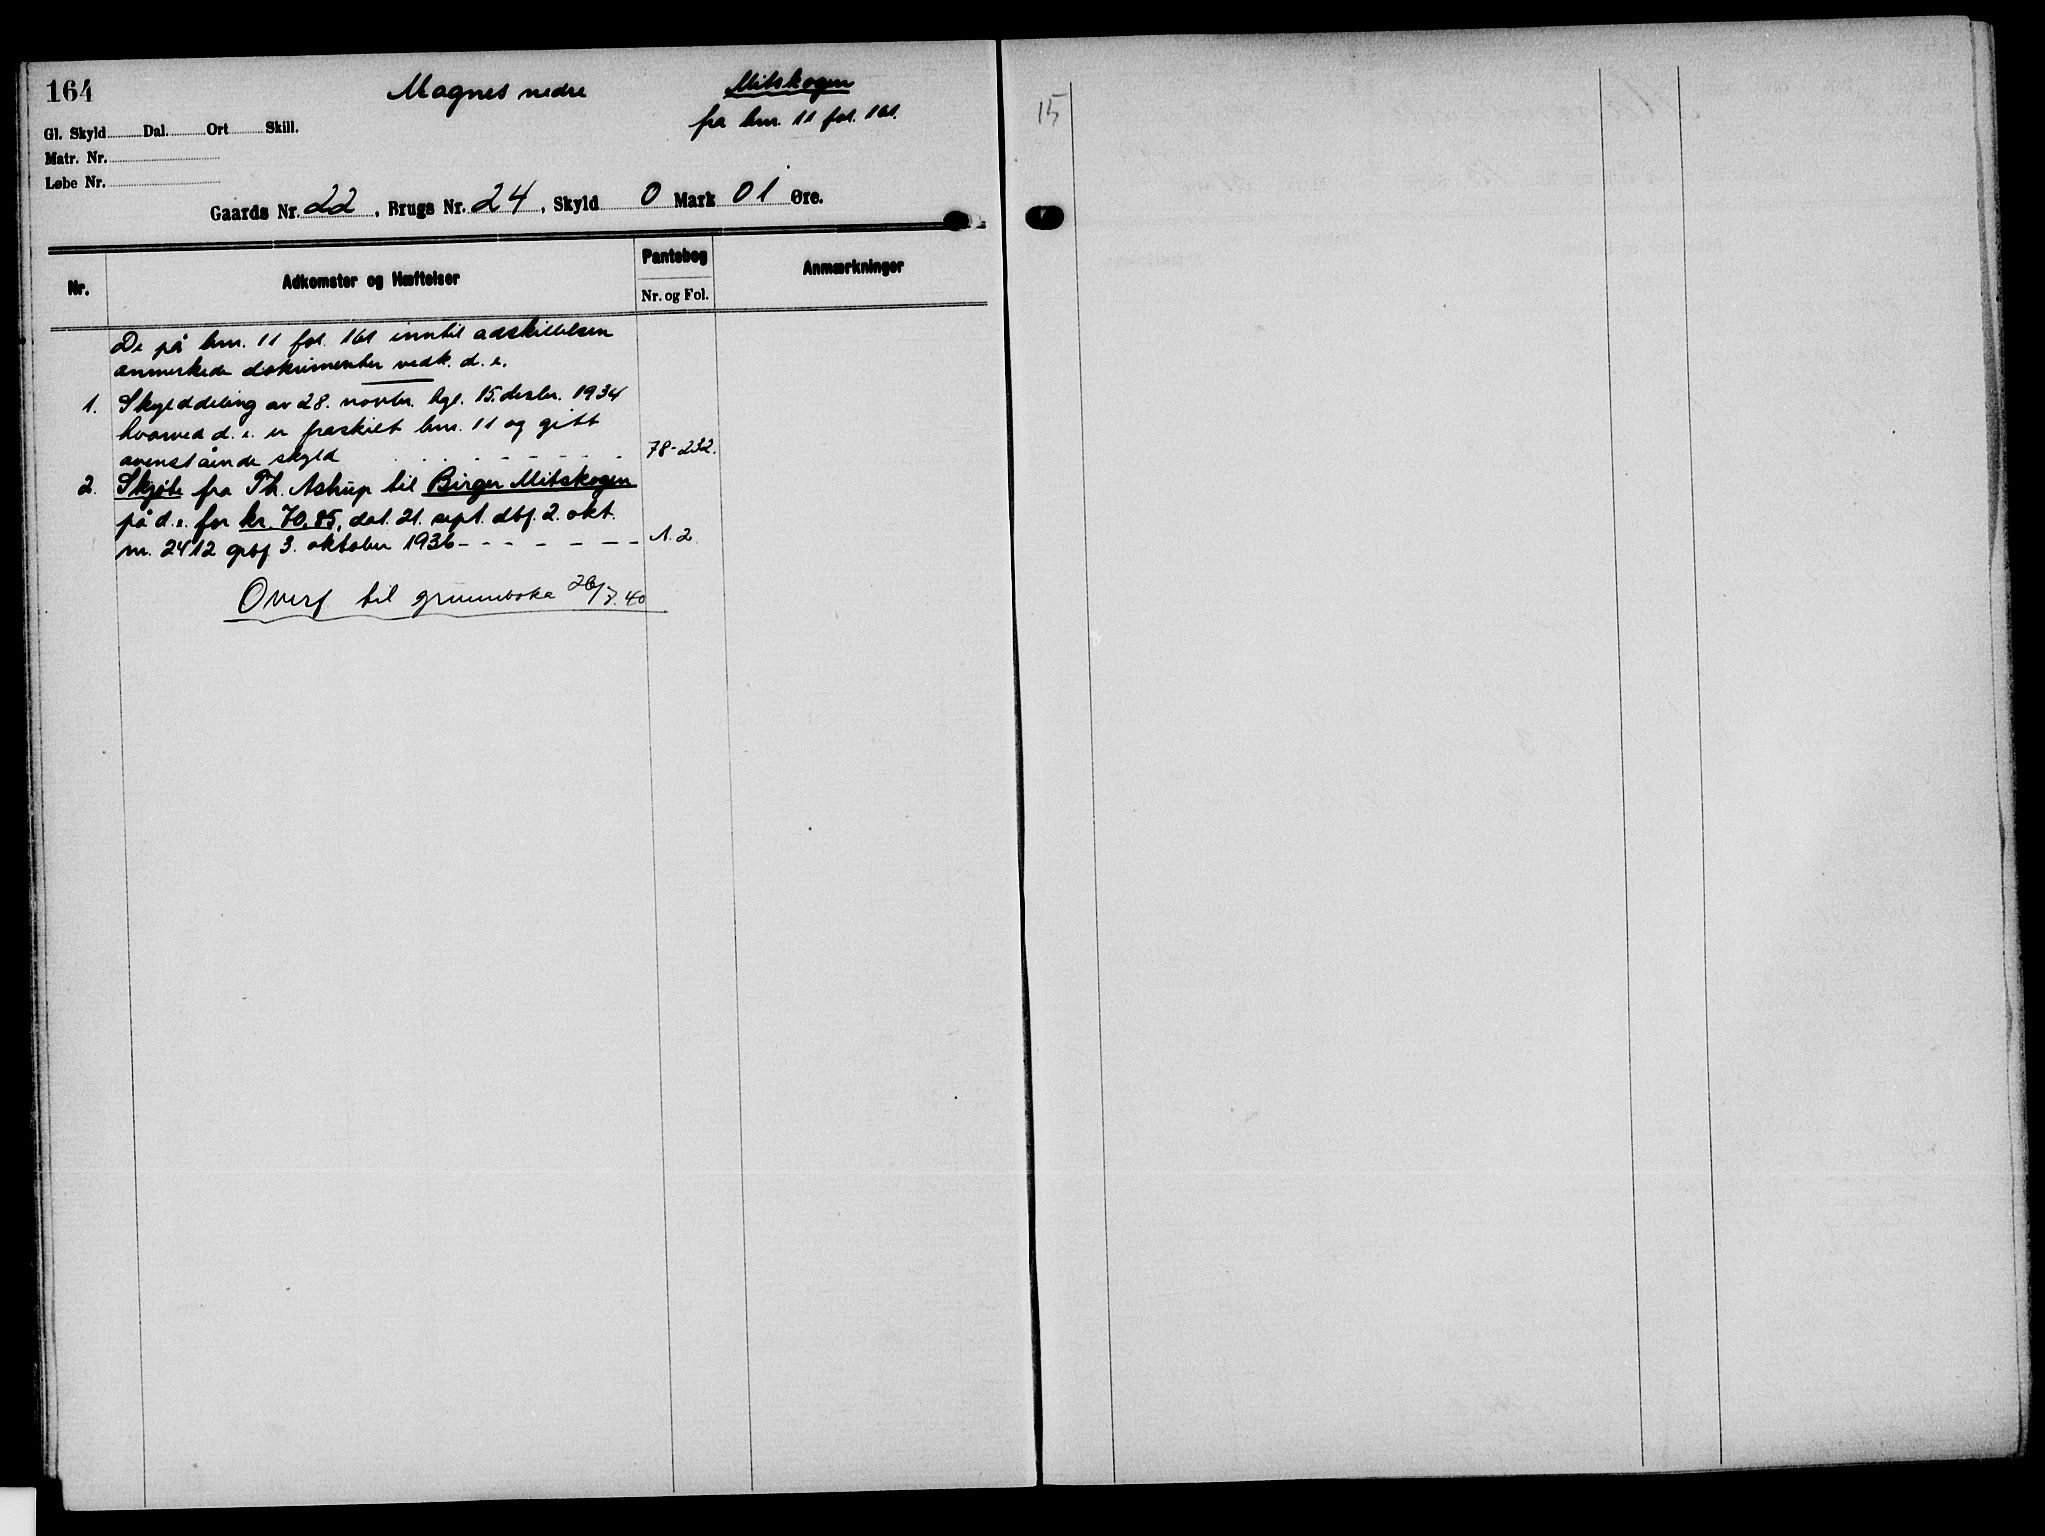 164
Magnes nedre
Mitskogen
fra bnr. 11 fol. 161.
Gl. Skyld Dal. Ort Skill.
Matr. Nr.
Løbe Nr.
Gaards Nr. 22, Brugs Nr. 24, Skyld 0 Mark 01 Øre.
Nr. Adkomster og Hæftelser Pantebog Anmærkninger
Nr. og Fol.
De på bnr. 11 fol. 161 inntil adskillelsen
anmerkede dokumenter vedk. d. e.
1. Skylddeling av 28. novbr. tgl. 15. desbr. 1934
hvorved d. e. er fraskilt bnr. 11 og gitt
ovenstående skyld 78-232.
2. Skjøte fra Th. Astrup til Birger Mitskogen
på d. e. for kr. 70,85, dat. 21. sept. dbf. 2. okt.
nr. 2412 grbf. 3. oktober 1936 - - - - - - - 1. 2
Overf til grunnboka 26/7.40
15